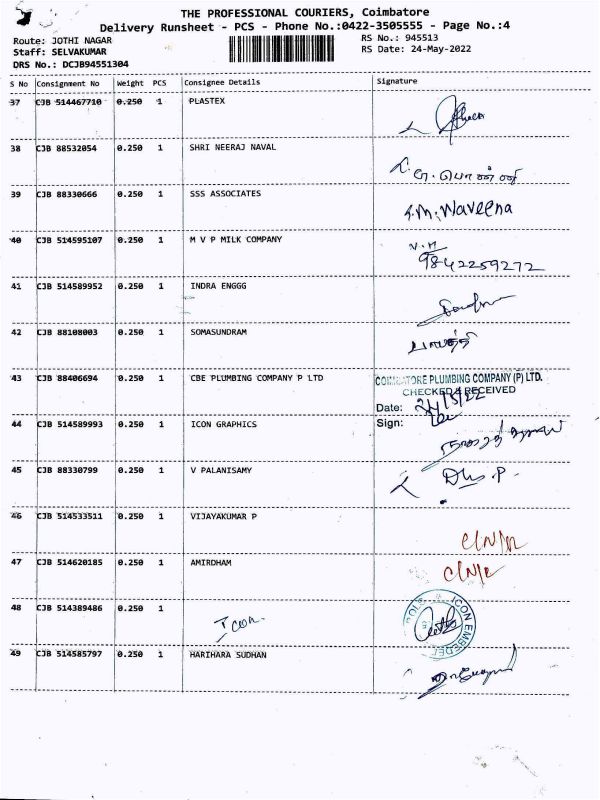 THE PROFESSIONAL COURIERS, Coimbatore
Delivery Runsheet - PCS - Phone No.:0422-3505555 - Page No.:4
Route: JOTHI NAGAR
RS No.: 945513
Staff: SELVAKUMAR
RS Date: 24-May-2022
DRS No.: DCJB94551304
S No Consignment No Weight PCS Consignee Details Signature
37 CJB 514467710 0.250 1 PLASTEX
38 CJB 88532054 0.250 1 SHRI NEERAJ NAVAL
39 CJB 88330666 0.250 1 SSS ASSOCIATES
40 CJB 514595107 0.250 1 M V P MILK COMPANY 9842259272
41 CJB 514589952 0.250 1 INDRA ENGGG
42 CJB 88108003 0.250 1 SOMASUNDRAM
43 CJB 88406694 0.250 1 CBE PLUMBING COMPANY P LTD
COIMBATORE PLUMBING COMPANY (P) LTD.
CHECKED & RECEIVED
Date:
Sign:
44 CJB 514589993 0.250 1 ICON GRAPHICS
45 CJB 88330799 0.250 1 V PALANISAMY
46 CJB 514533511 0.250 1 VIJAYAKUMAR P
47 CJB 514620185 0.250 1 AMIRDHAM
48 CJB 514389486 0.250 1 Icon. ICON EMBEDED
49 CJB 514585797 0.250 1 HARIHARA SUDHAN